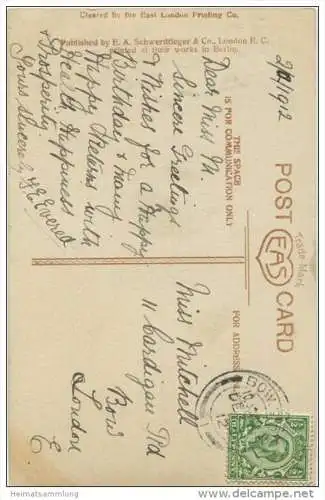 Cleared by the East London Printing Co.
Published by E. A. Schwerdtfeger & Co., London E. C.
printed at their works in Berlin.
POST CARD
Trade Mark
EAS
THE SPACE
IS FOR COMMUNICATION ONLY
FOR ADDRESS
Dear Miss M.
Sincere Greetings
& Wishes for a Happy
Birthday & many
Happy Returns with
Health Happiness
& Prosperity
Yours Sincerely
Evered
Miss Mitchell
11 Cardigan Rd
Bow
London
E
BOW
Heimatsammler.de